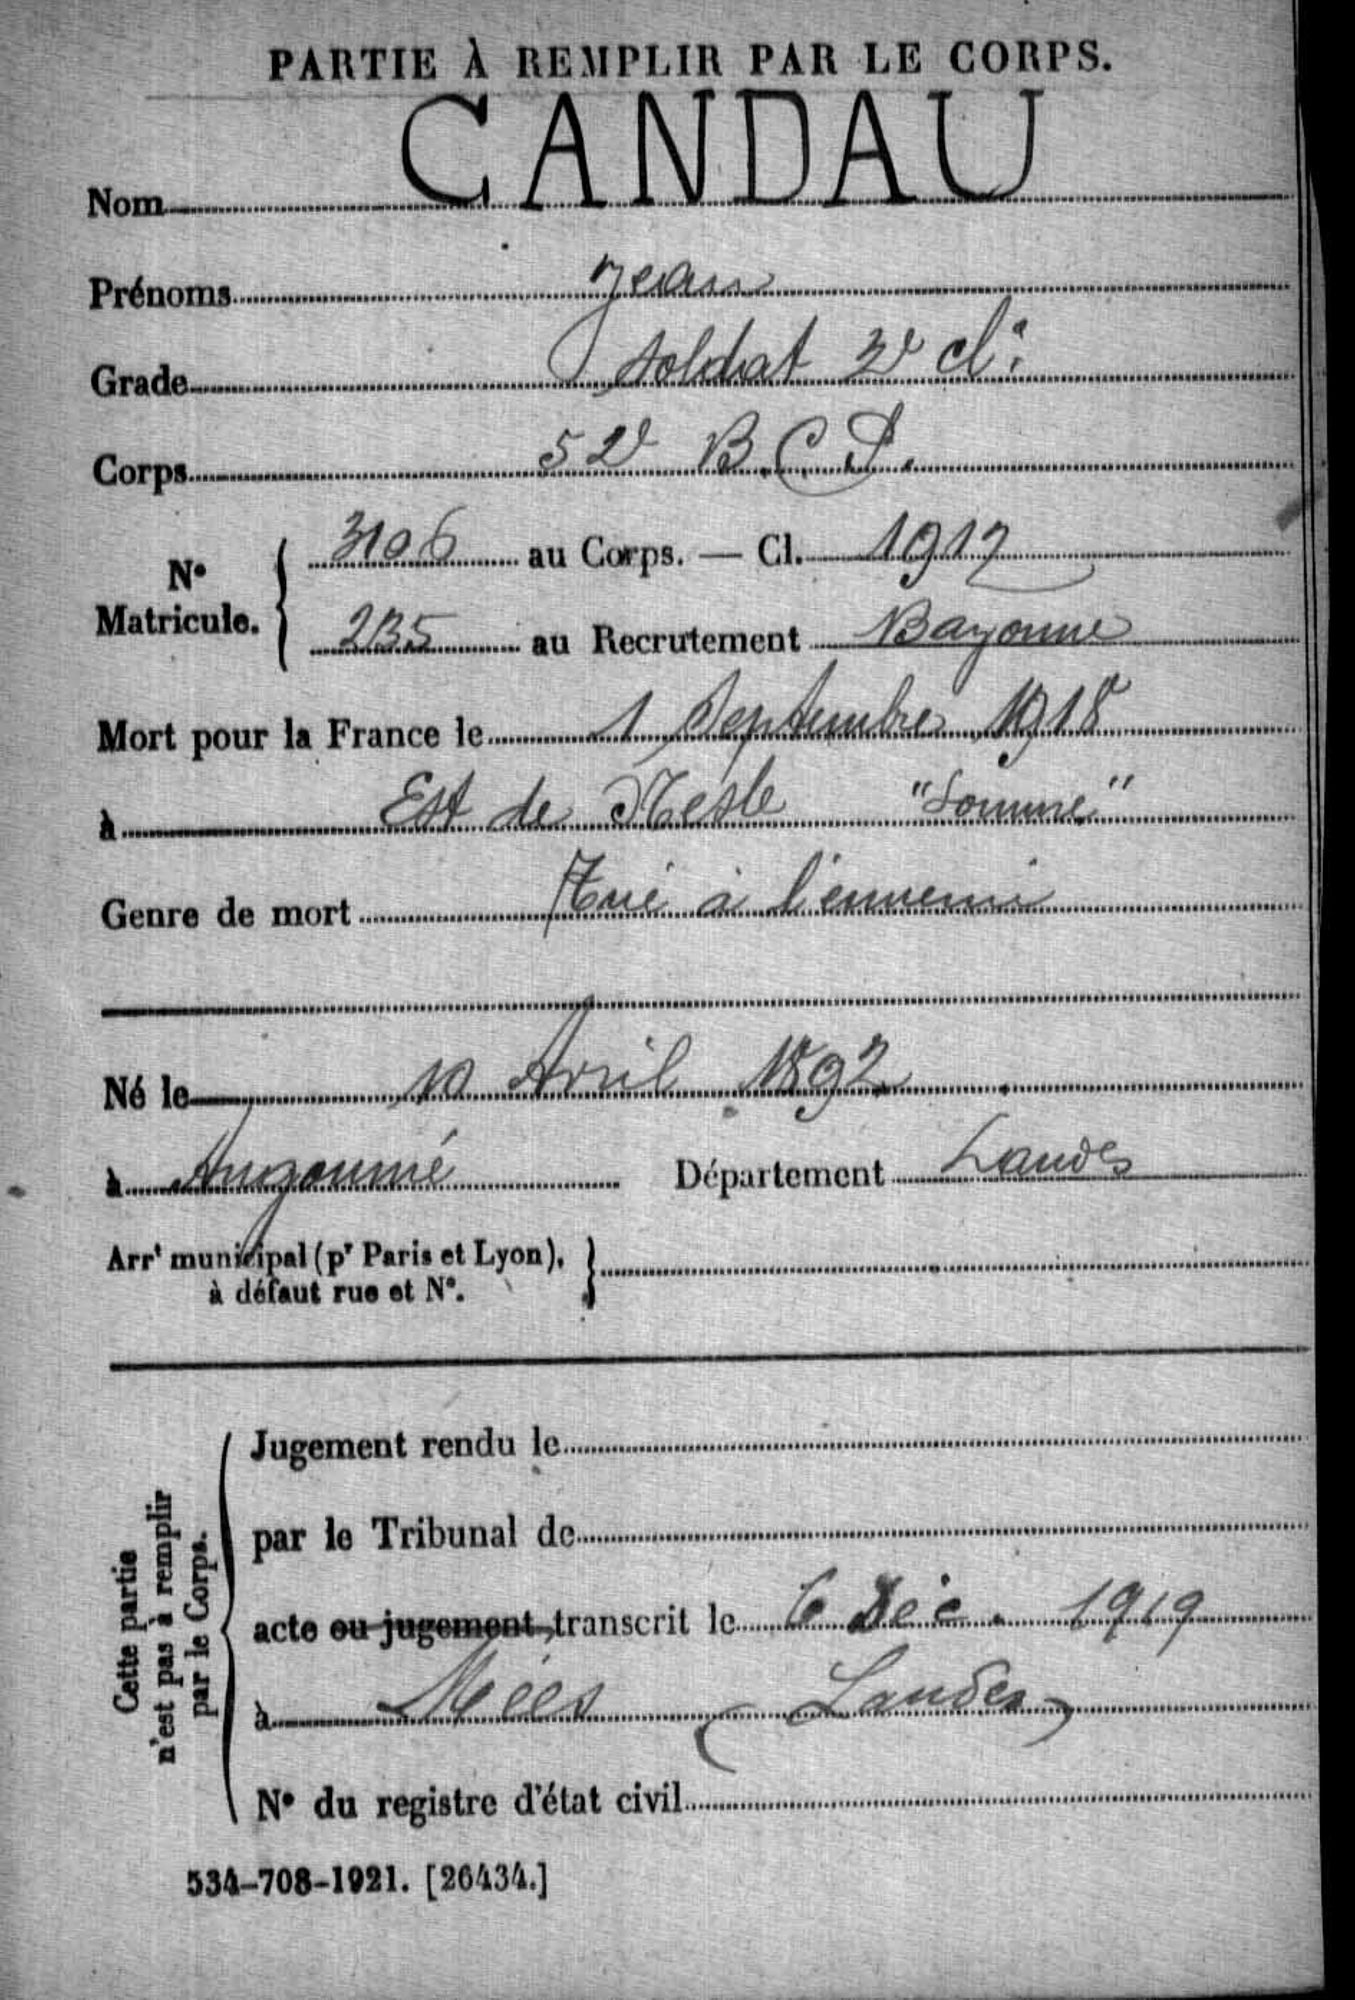 PARTIE À REMPLIR PAR LE CORPS.
Nom CANDAU
Prénoms Jean
Grade Soldat 2e cl.
Corps 52e B.C.P.
No Matricule. 3106 au Corps. — Cl. 1912
235 au Recrutement Bayonne
Mort pour la France le 1 Septembre 1918
à Est de Nesle "Somme"
Genre de mort Tué à l'ennemi
Né le 10 Avril 1892
à Angoumé Département Landes
Arrt municipal (pr Paris et Lyon),
à défaut rue et No.
Cette partie
n'est pas à remplir
par le Corps.
Jugement rendu le
par le Tribunal de
acte ou jugement transcrit le 6 Déc. 1919
à Mées (Landes)
No du registre d'état civil
534-708-1921. [26434.]